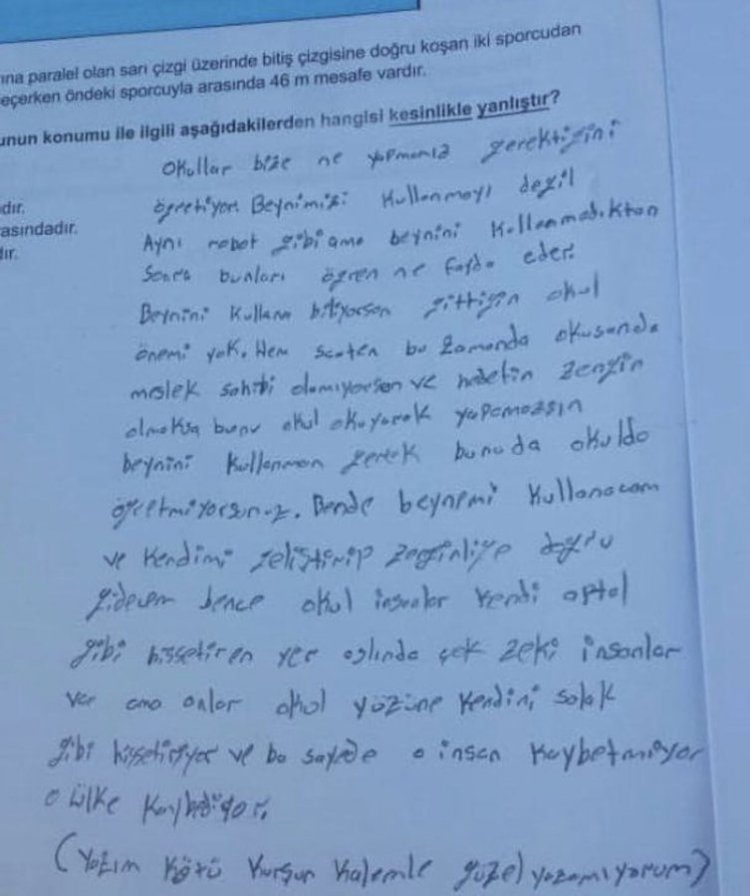 ına paralel olan sarı çizgi üzerinde bitiş çizgisine doğru koşan iki sporcudan
eçerken öndeki sporcuyla arasında 46 m mesafe vardır.
unun konumu ile ilgili aşağıdakilerden hangisi kesinlikle yanlıştır?
dır.
asındadır.
dır.
Okullar bize ne yapmamız gerektiğini
öğretiyor. Beynimizi Kullanmayı değil
Aynı robot gibi ama beynini Kullanmadıktan
Sonra bunları öğren ne fayda eder.
Beynini Kullana biliyorsan gittiğin okul
önemi yok. Hem scaten bu zamanda okusanda
meslek sahibi olamıyorsan ve hedefin zengin
olmaksa bunu okul okuyarak yapamazsın
beynini Kullanman gerek bunuda okulda
öğretmiyorsunuz. Bende beynimi Kullanacam
ve Kendimi geliştirip zenginliğe doğru
gidecem bence okul insanlar Kendi aptal
gibi hissetiren yer aslında çok zeki insanlar
var ama onlar okul yüzüne Kendini salak
gibi hissetiriyor ve bu sayede o insan Kaybetmiyor
o ülke Kaybediyor.
(Yazım Kötü Kurşun Kalemle güzel yazamıyorum)